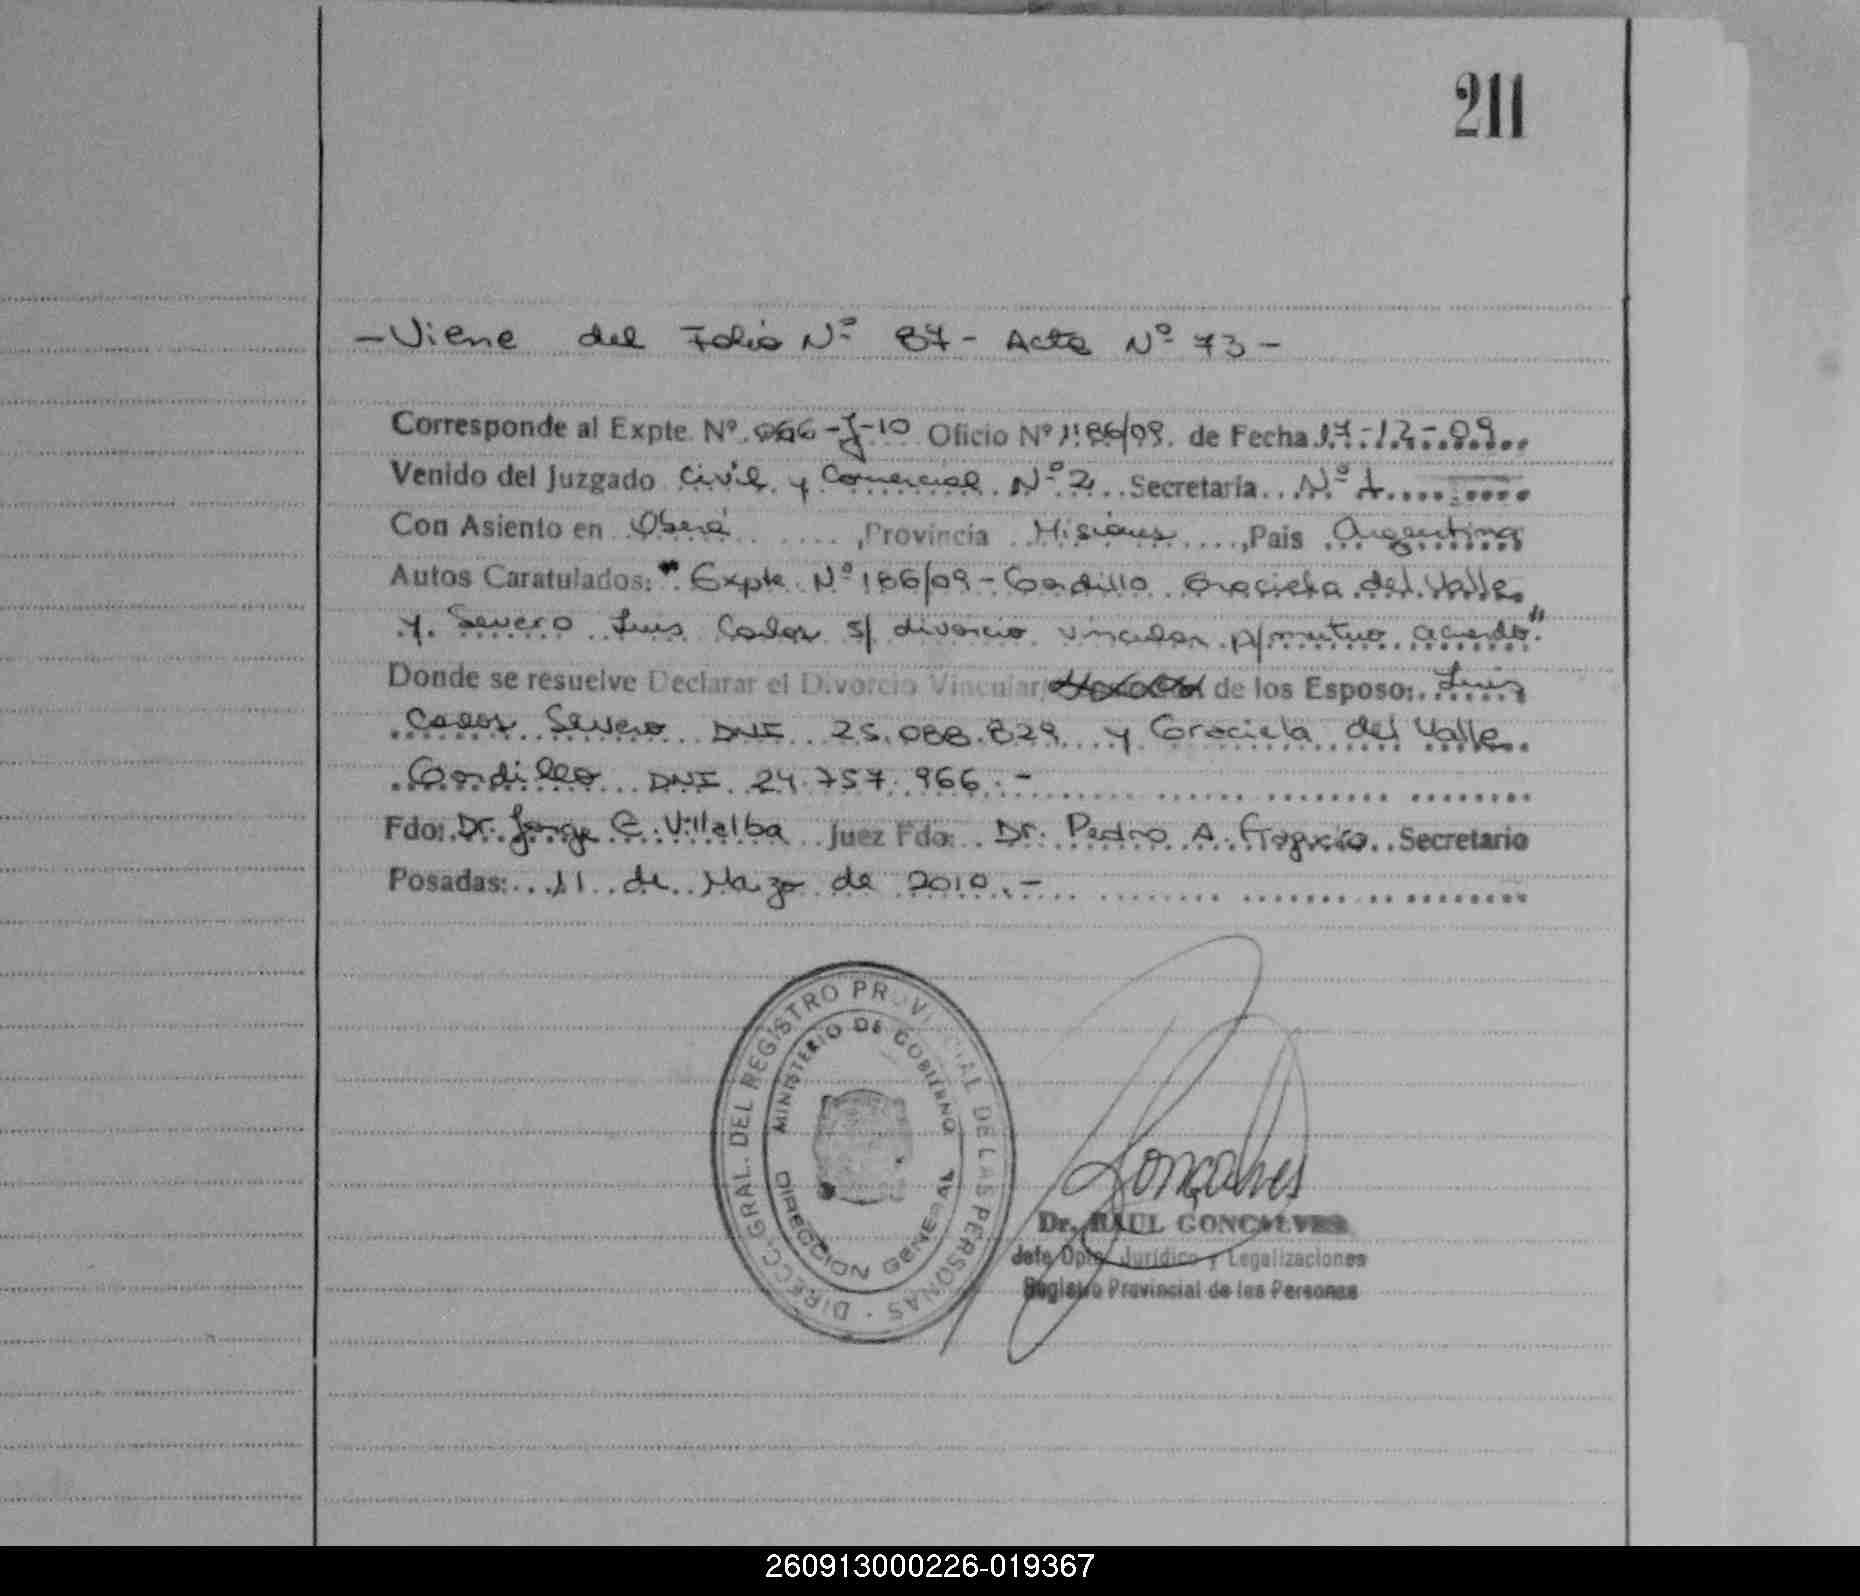 211
-Viene del Folio Nº 87- Acta Nº 73-
Corresponde al Expte. Nº 066-J-10 Oficio Nº 1186/09. de Fecha 17-12-09
Venido del Juzgado Civil y Comercial Nº 2 Secretaria Nº 1
Con Asiento en Oberá, Provincia Misiones, Pais Argentina
Autos Caratulados: "Expte. Nº 186/09 - Gordillo Graciela del Valle
y Severo Luis Carlos s/ divorcio vincular p/mutuo acuerdo."
Donde se resuelve Declarar el Divorcio Vincular de los Esposo: Luis
Carlos Severo DNI 25.088.829 y Graciela del Valle
Gordillo DNI 24.757.966.-
Fdo: Dr. Jorge E. Villalba Juez Fdo: Dr. Pedro A. Secretario
Posadas: 11 de Marzo de 2010.-
DIRECC. GRAL. DEL REGISTRO PROVINCIAL DE LAS PERSONAS
MINISTERIO DE GOBIERNO
DIRECCION GENERAL
Gonçalves
Dr. RAUL GONCALVES
Jefe Dpto. Jurídico y Legalizaciones
Registro Provincial de las Personas
260913000226-019367